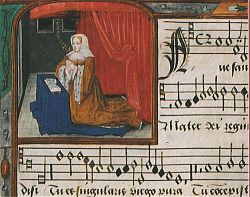 A
ue san
Mater dei regi
disi Tu es singularis virgo pura Tu cōcepis